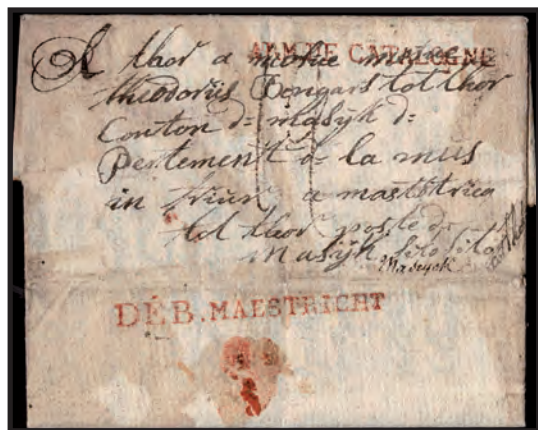 ARM. DE CATALOGNE
A thor a
theodorus Dongars tot thor
Conton d: masijk d:
Pertement d: la mus
in triur a mastrica
tot thor poste d:
Masijk
Maseyck
DÉB. MAESTRICHT